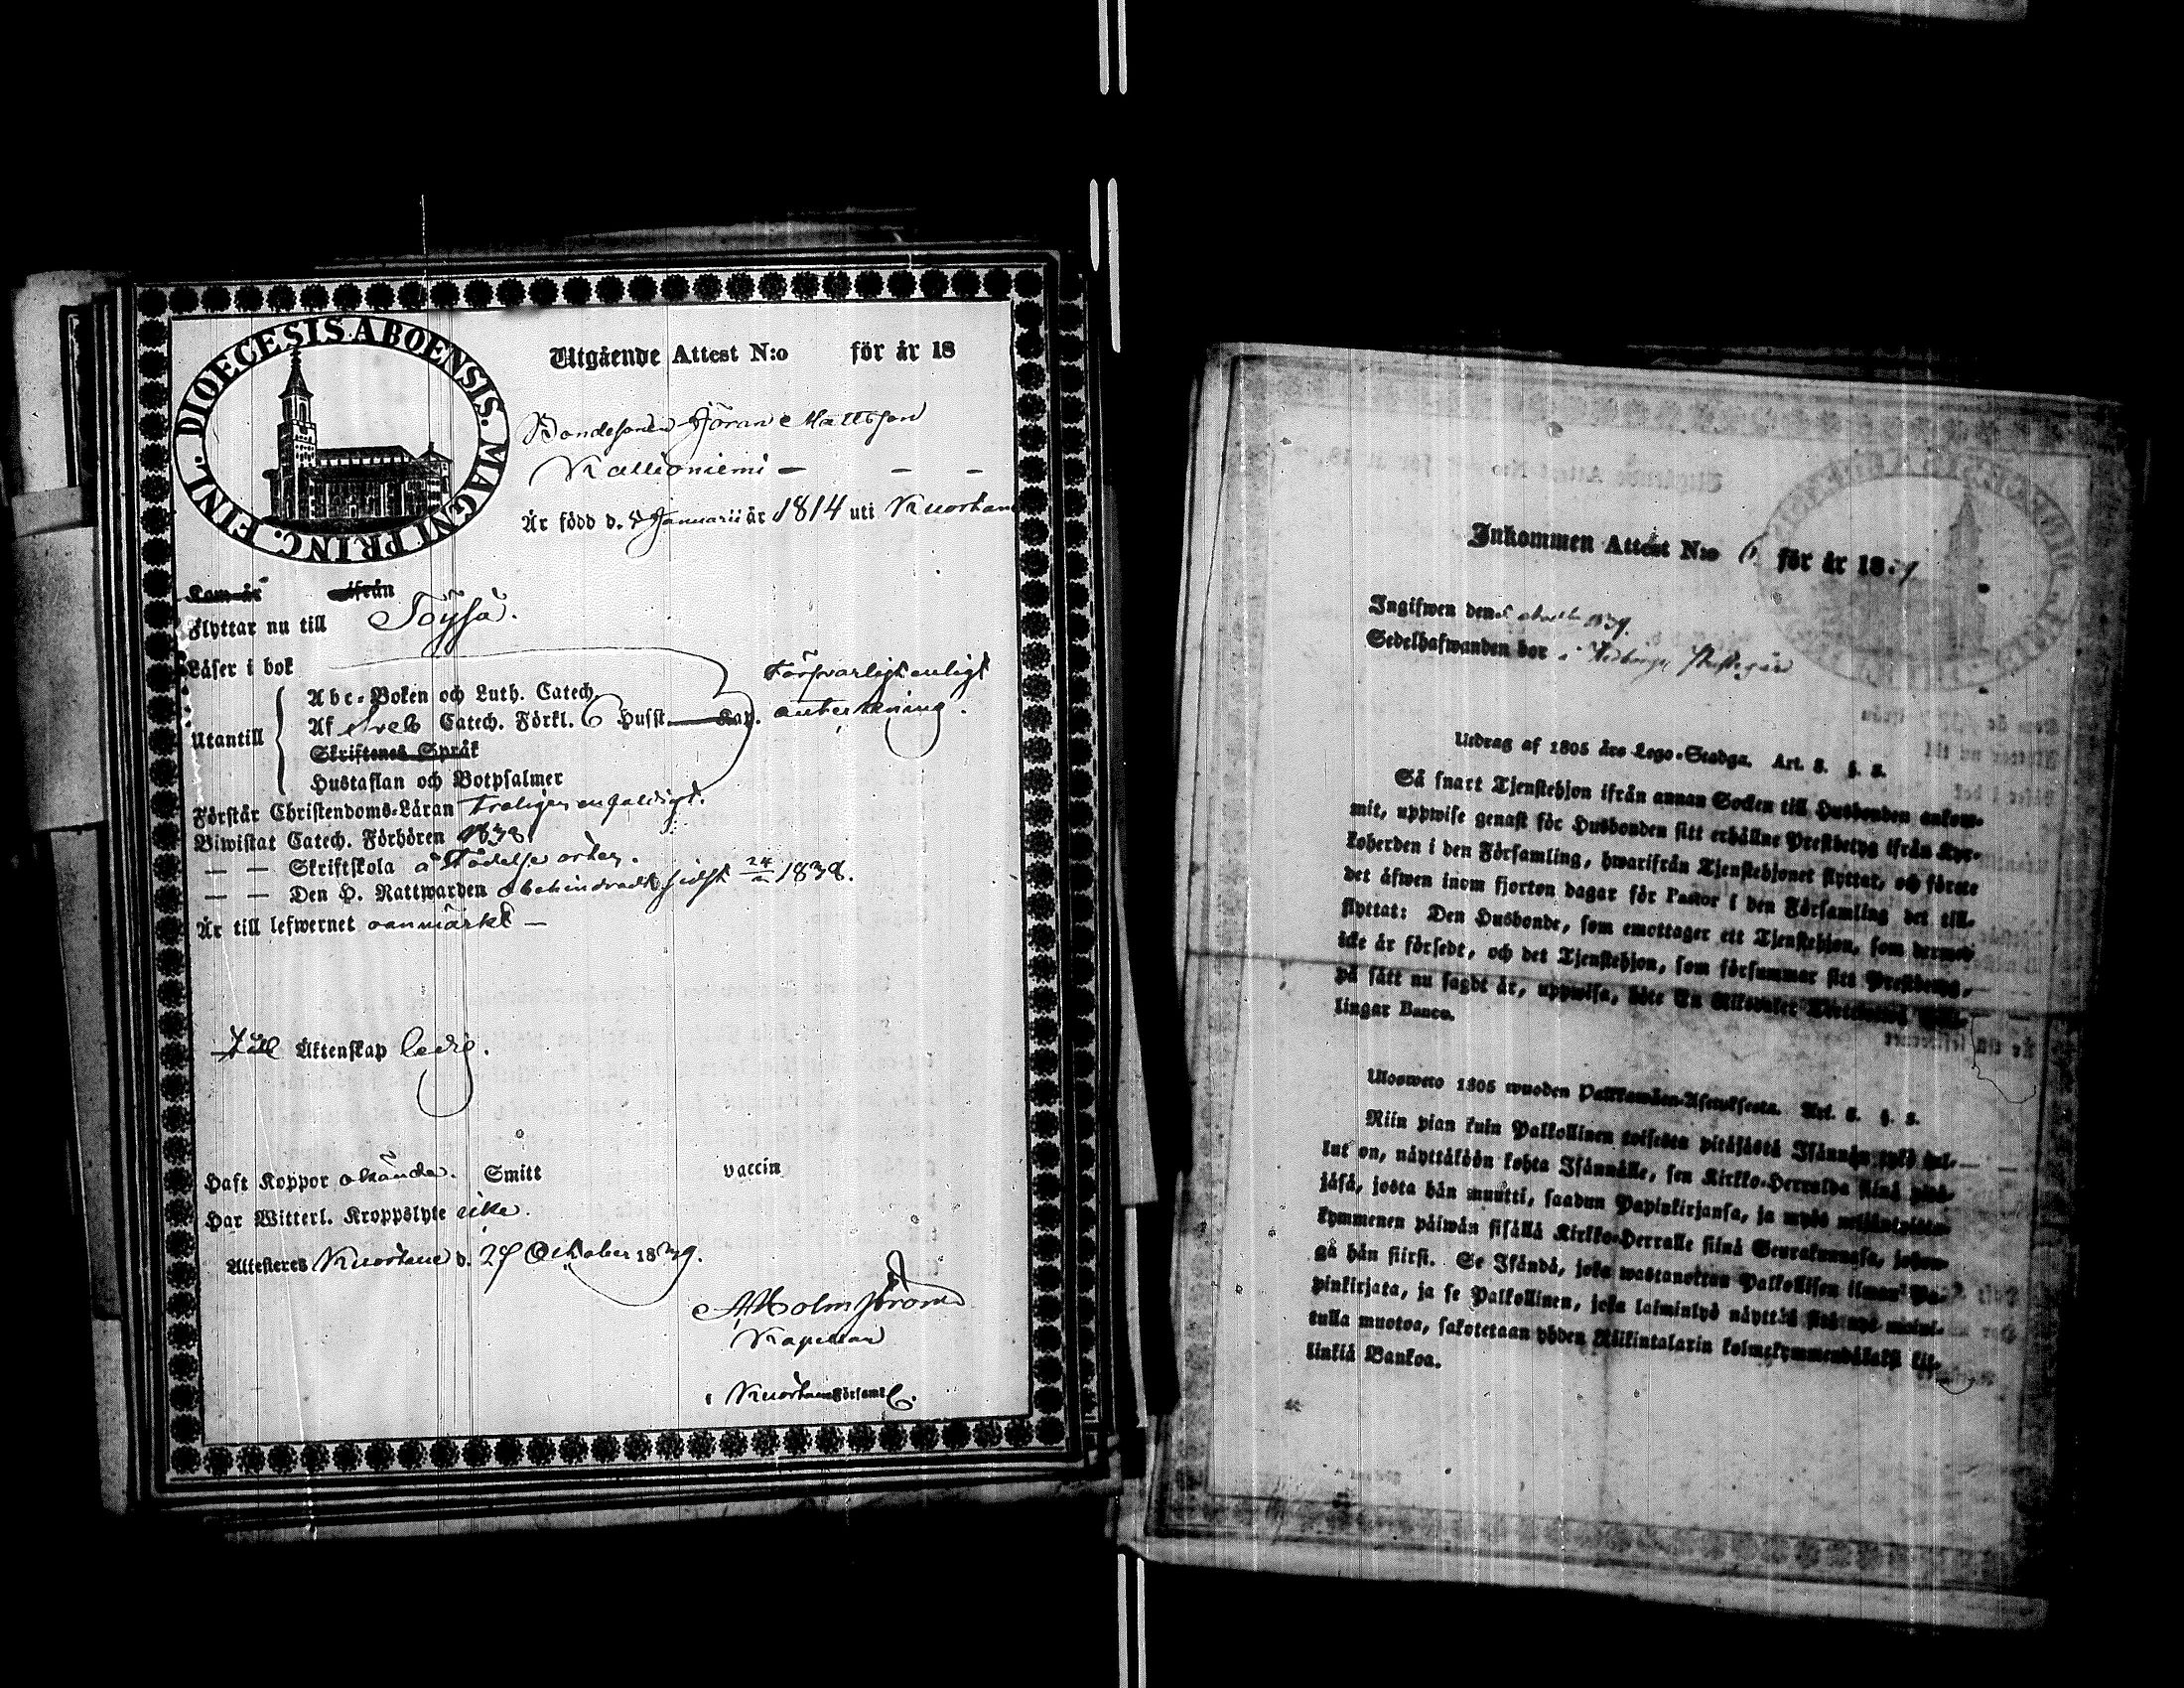 DIOECESIS ABOENSIS. MAGNI PRINC. FINL.
Utgående Attest N:o för år 18
Bondesonen Jöran Mattsson
Kallioniemi — — —
Är född d. 5 Januarii år 1814 uti Kuortan
Kom år ifrån
Flyttar nu till Töysä.
Läser i bok
Försvarligt enligt
anteckning.
Utantill
Abc-Boken och Luth. Catech.
Af Sveb Catech. Förkl. 6 Husst. Kap.
Skriftenes Språk
Hustaflan och Botpsalmer
Förstår Christendoms-Läran troligen enfaldigt.
Biwistat Catech. Förhören 1838
— — Skriftskola å födelse orten.
— — Den H. Nattwarden obehindradt, sidst 24 1838.
Är till lefwernet oanmärkt —
Till Äktenskap ledig.
Haft Koppor okände. Smitt vaccin
Har Witterl. Kroppslyte icke.
Attesteres Kuortane d. 27 October 1839.
A Holmström
Kapellan
i Kuortane Församl.
Inkommen Attest N:o 6. för år 1839
Ingifwen den 1839.
Sedelhafwanden bor i
Utdrag af 1805 års Lego-Stadga. Art. 3. §. 2.
Så snart Tjenstehjon ifrån annan Socken till Husbonden ankom-
mit, uppwise genast för Husbonden sitt erhållne Prestbetyg ifrån Kyr-
koherden i den Församling, hwarifrån Tjenstehjonet flyttat, och förete
det äfwen inom fjorton dagar för Pastor i den Församling det till-
flyttat: Den Husbonde, som emottager ett Tjenstehjon, som dermed
icke är försedt, och det Tjenstehjon, som försummar sitt Prestbetyg,
på sätt nu sagdt är, uppwisa, böte En Riksdaler Skil-
lingar Banco.
Ulosweto 1805 wuoden Palkkawäen-Asetuksesta. Art. 3. §. 2.
Niin pian kuin Palkollinen toisesta pitäjästä Isännän tykö tul-
lut on, näyttäköön kohta Isännälle, sen Kirkko-Herralda siinä pitä-
jäsä, josta hän muutti, saadun Papinkirjansa, ja myös neljäntoista-
kymmenen päiwän sisällä Kirkko-Herralle siinä Seurakunnasa, johon-
ga hän siirsi. Se Isändä, joka wastanottaa Palkollisen ilman Pa-
pinkirjata, ja se Palkollinen, joka laiminlyö näyttää sitä nyt maini-
tulla muotoa, sakotetaan yhden Riikintalarin kolmekymmendäkaksi kil-
linkiä Bankoa.